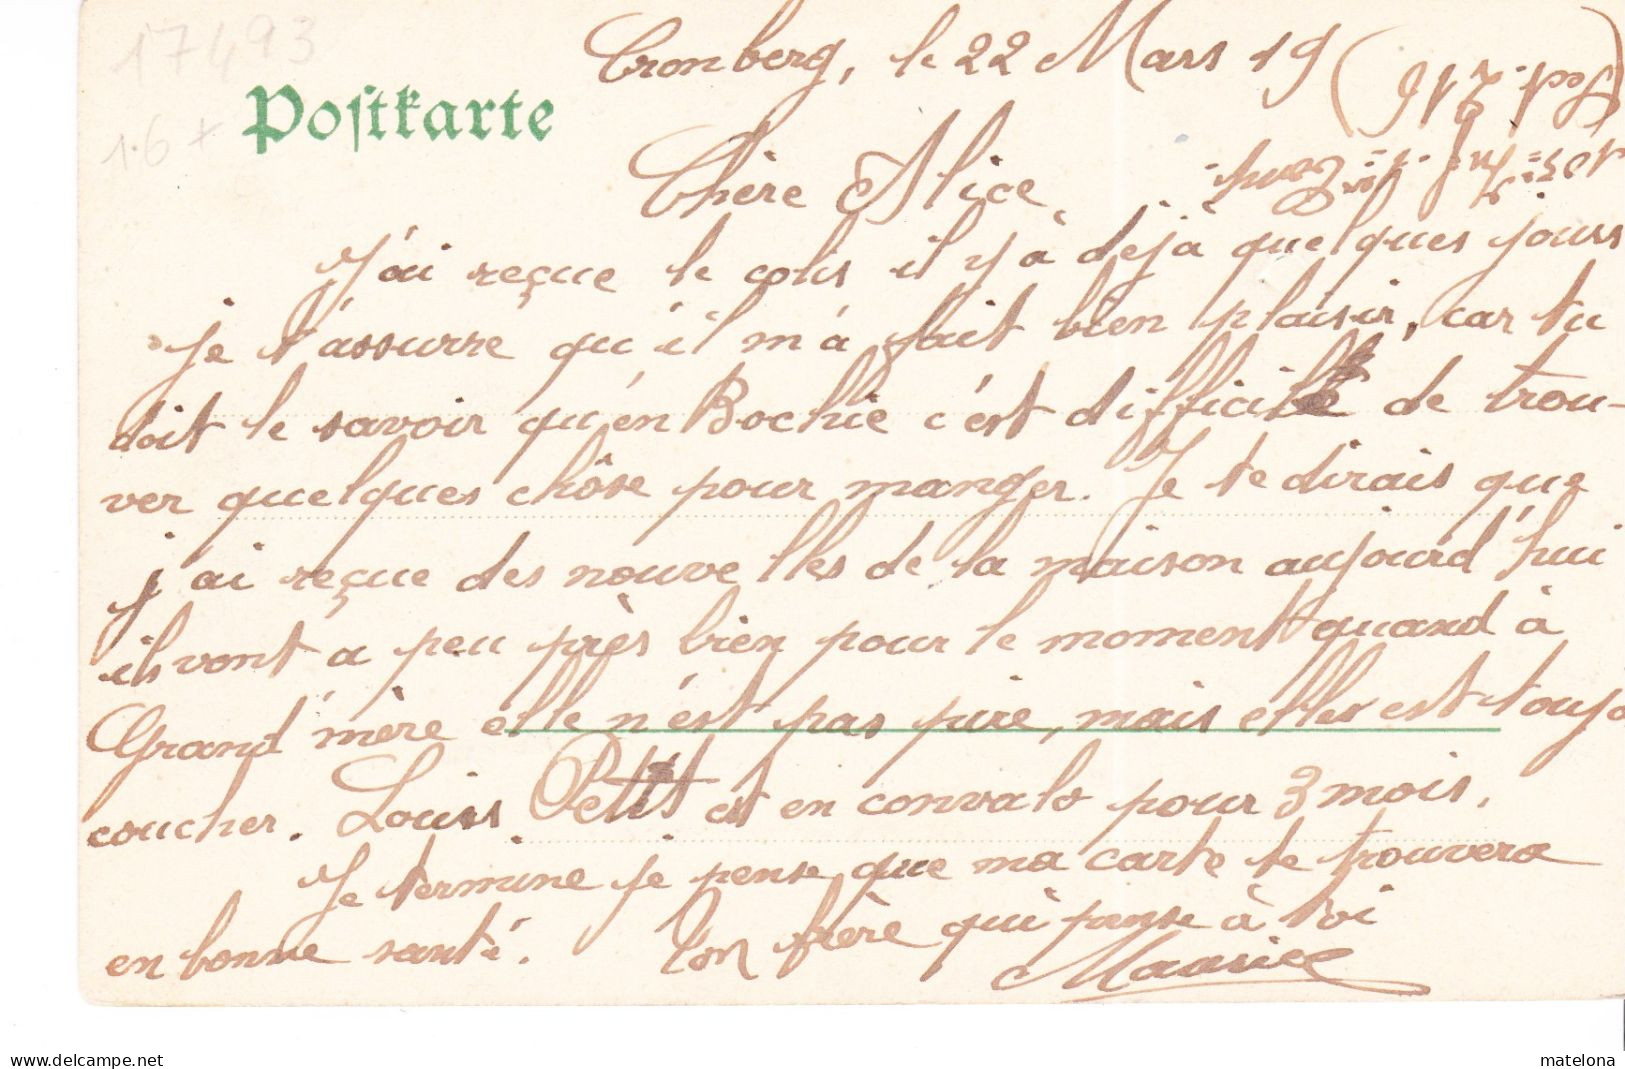 17493
16+
Postkarte
Cronberg, le 22 Mars 19
Chère Alice
J'ai reçue le colis il y à dejà quelques jours
je t'assurre qu'il m'a fait bien plaisir, car tu
doit le savoir qu'en Bochie c'est difficile de trou-
ver quelques chôse pour manger. Je te dirais que
j'ai reçue des nouvelles de la maison aujourd'hui
ils vont a peu près bien pour le moment quand à
Grand'mère elle n'est pas pire, mais elles est toujo
coucher. Louis Petit est en convalo pour 3 mois.
Je termine je pense que ma carte te trouvera
en bonne santé. Ton frère qui panse à toi
Maurice
www.delcampe.net
matelona